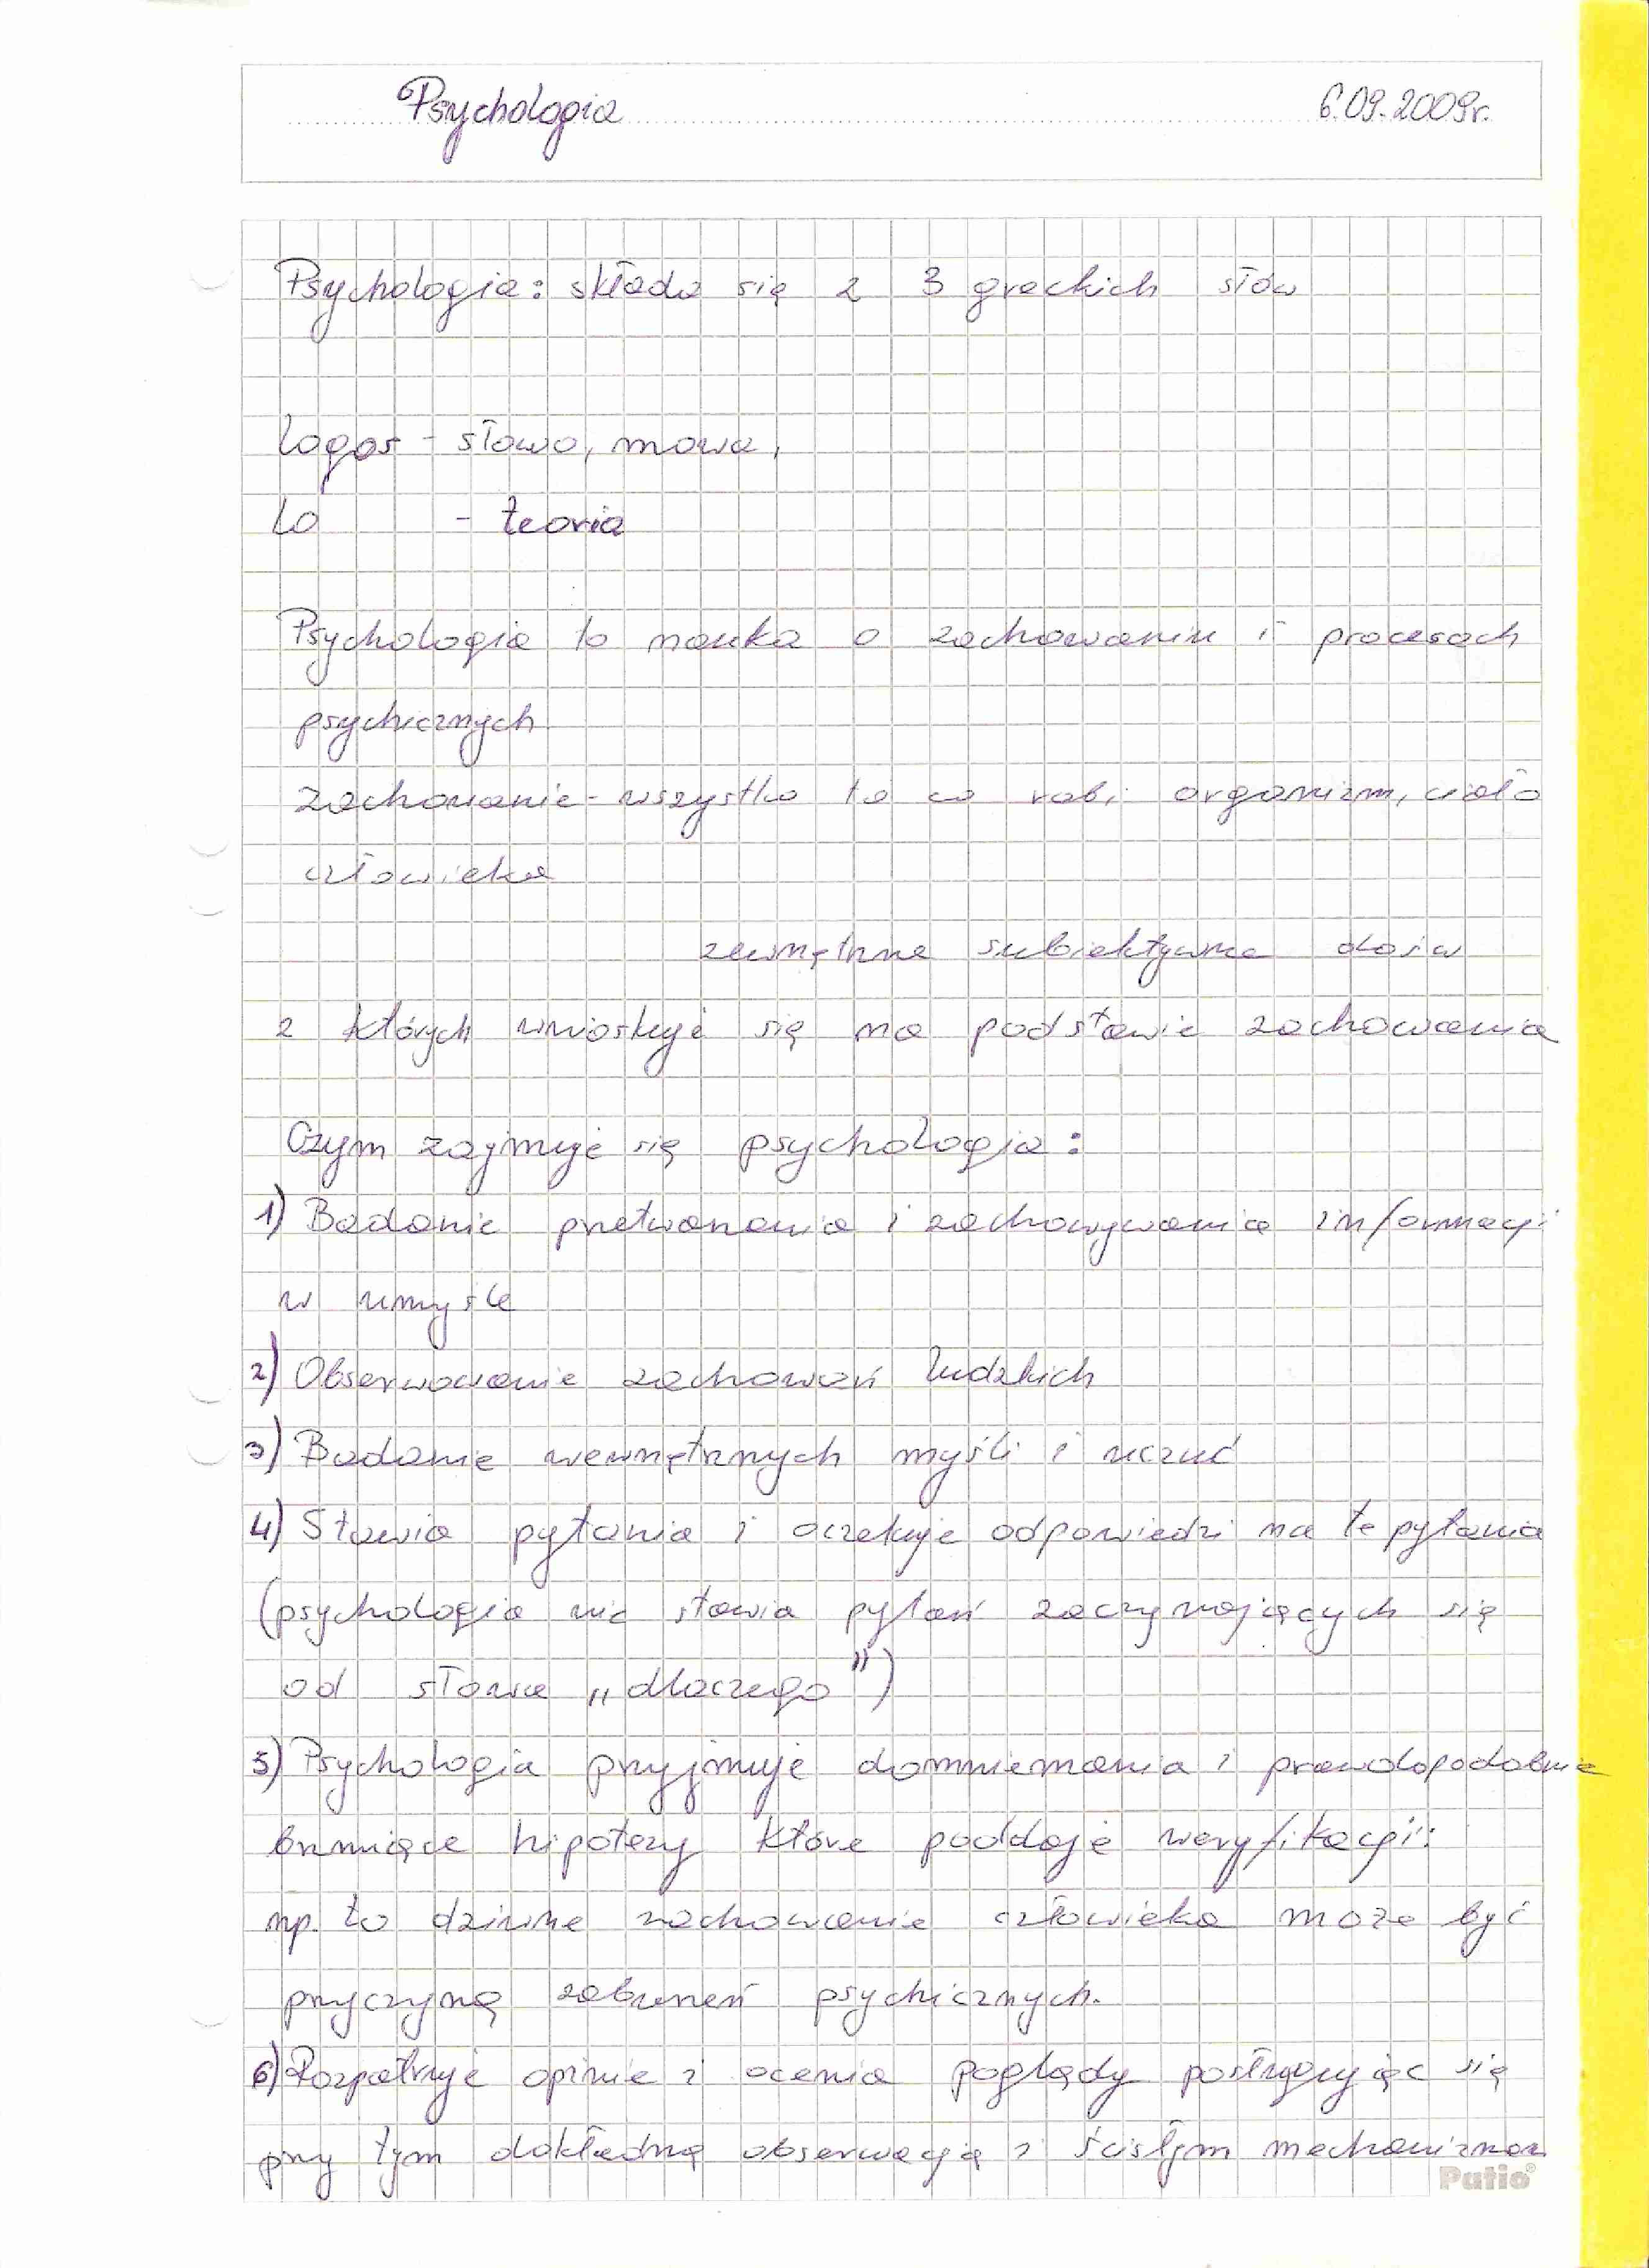 Psychologia 6.09.2009r.
Psychologia: składa się z 3 greckich słów
logos - słowo, mowa,
lo - teoria
Psychologia to nauka o zachowaniu i procesach
psychicznych
zachowanie - wszystko to co robi organizm, ciało
człowieka
zewnętrzne subiektywne dośw
z których wnioskuje się na podstawie zachowania
Czym zajmuje się psychologia:
1) Badanie przetwarzania i zachowywania informacji
w umyśle
2) Obserwowanie zachowań ludzkich
3) Badanie wewnętrznych myśli i uczuć
4) Stawia pytania i oczekuje odpowiedzi na te pytania
(psychologia nie stawia pytań zaczynających się
od słowa „dlaczego")
5) Psychologia przyjmuje domniemania i prawdopodobnie
brzmiące hipotezy które poddaje weryfikacji:
np. to dziwne zachowanie człowieka może być
przyczyną zaburzeń psychicznych.
6) Rozpatruje opinie i ocenia poglądy posługując się
przy tym dokładną obserwacją i ścisłym mechanizmem
Patio®